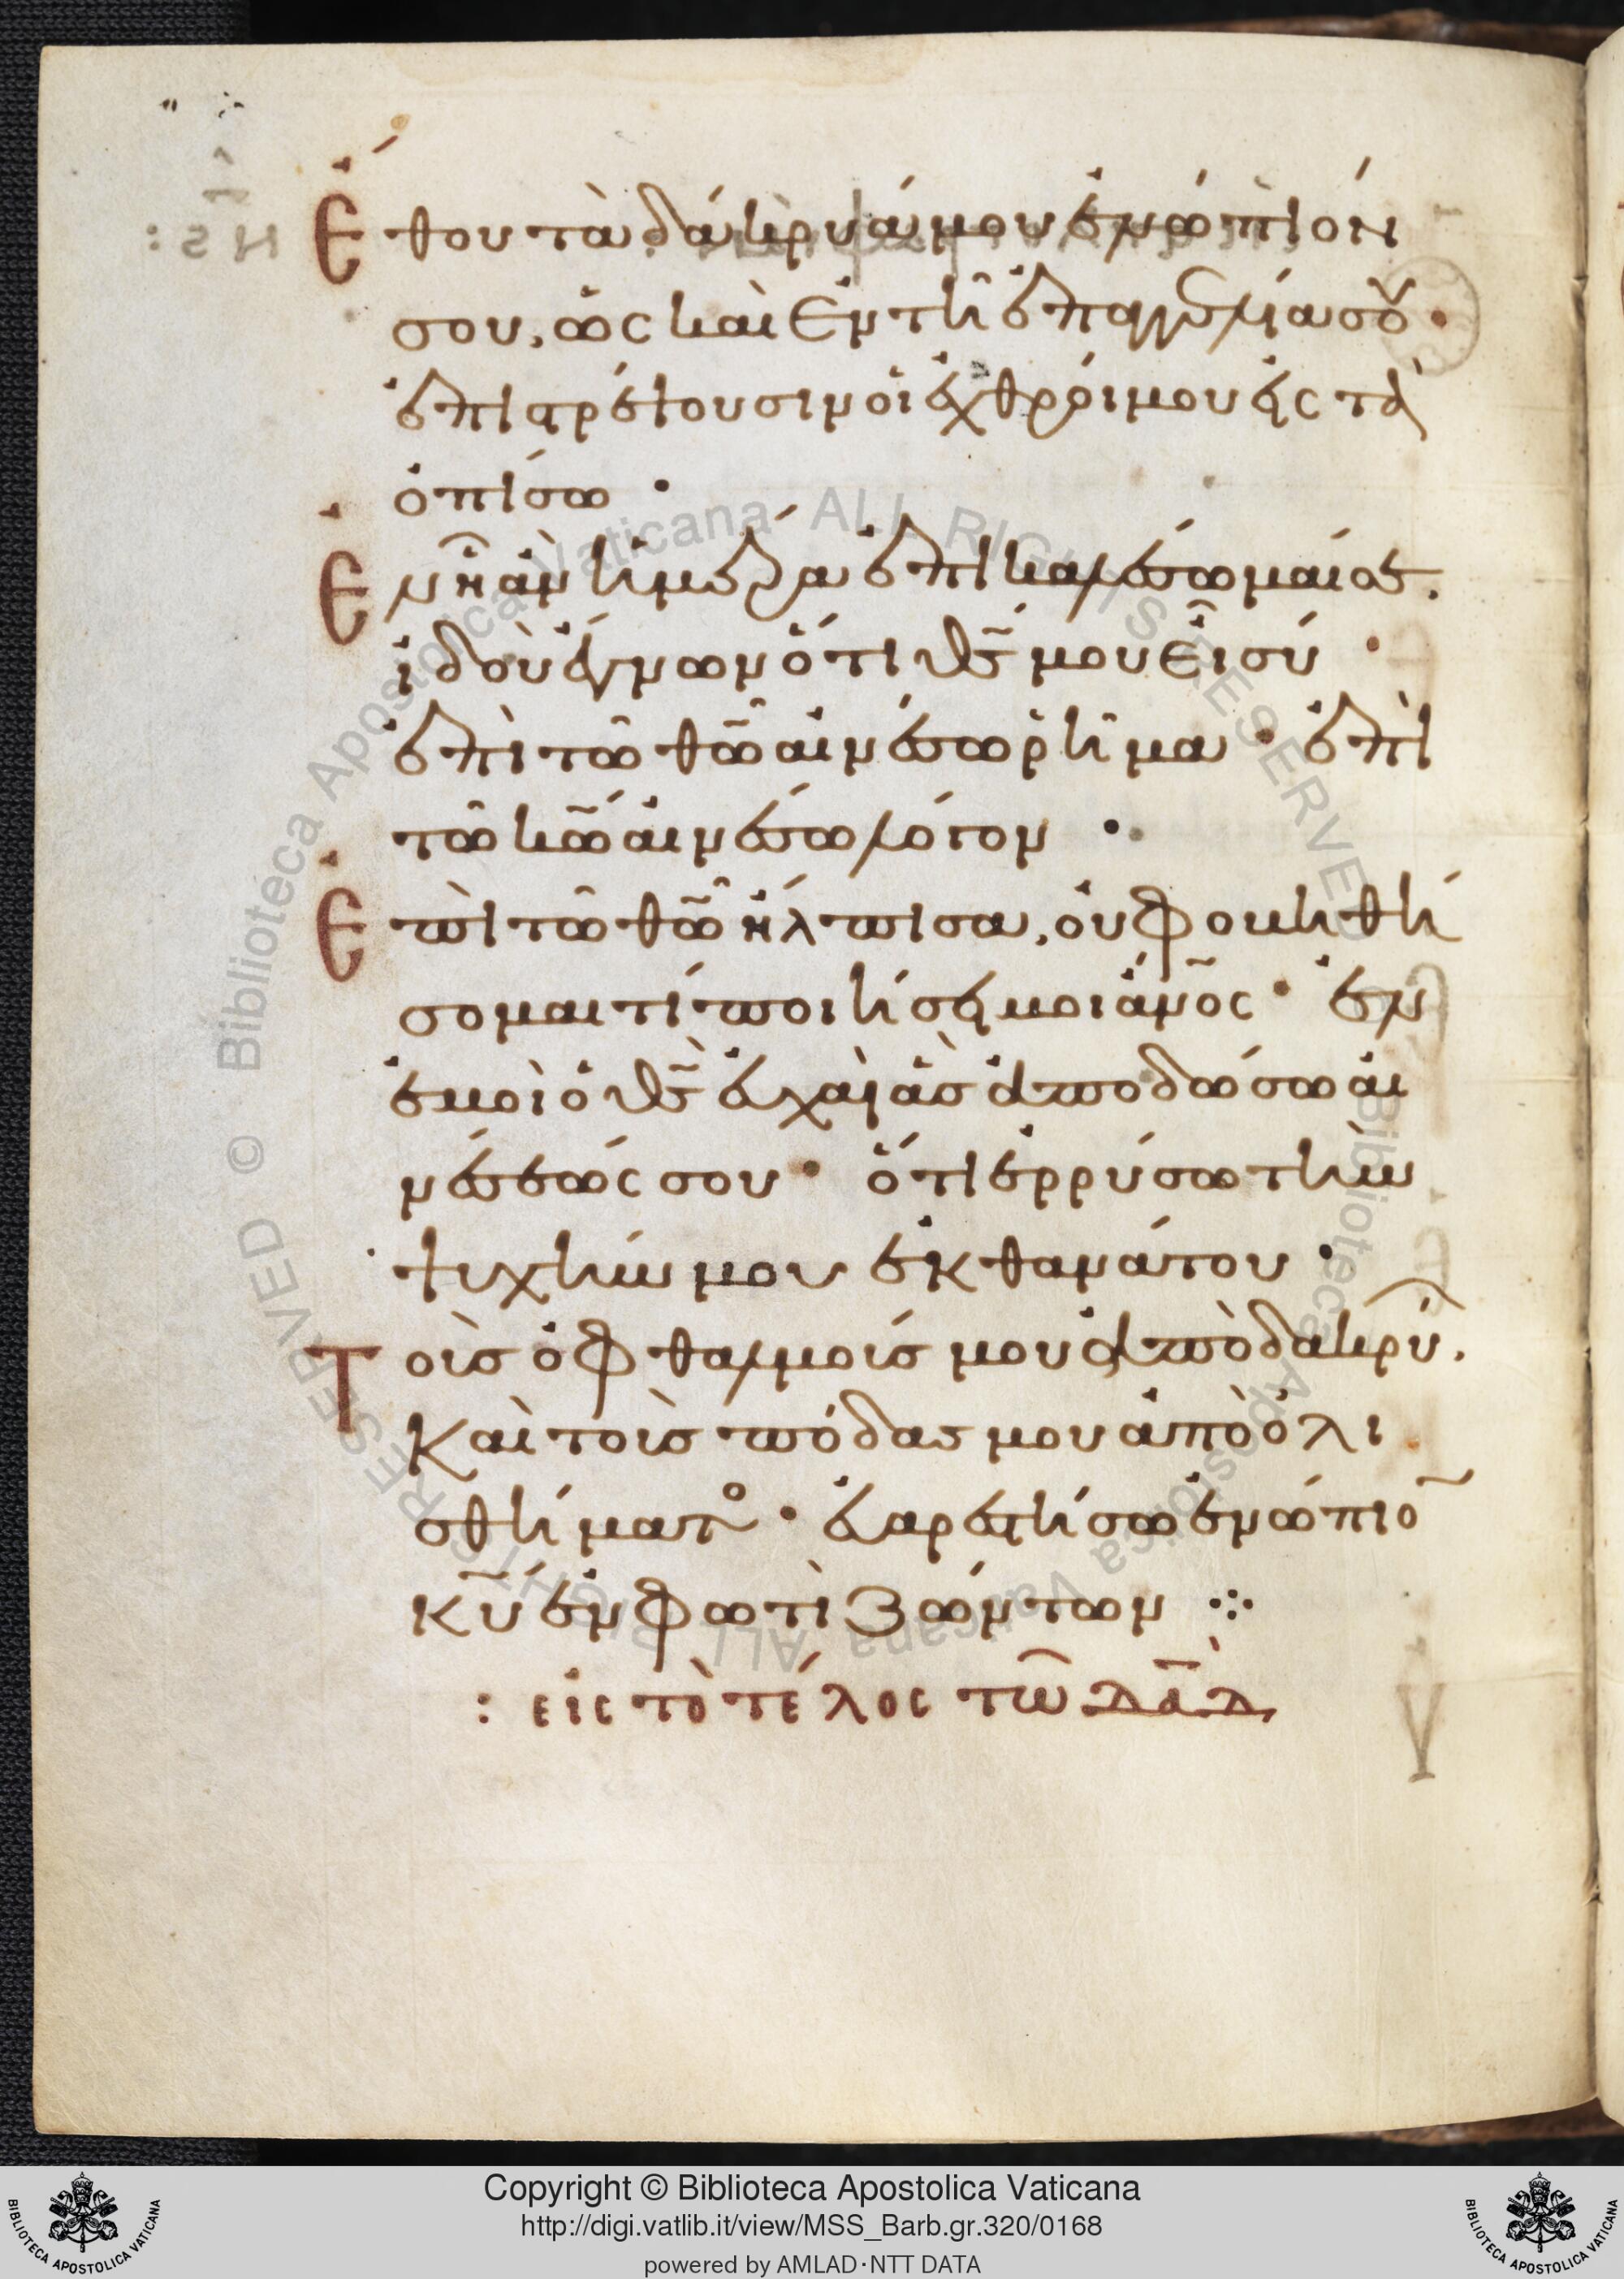 Ἔθου τὰ δάκρυά μου ἐνώπιόν
σου, ὡς καὶ ἐν τῆ ἐπαγγελία σου·
ἐπιστρέψουσιν οἱ ἐχθροί μου εἰς τὰ
ὀπίσω·
Ἐν ἧ ἂν ἡμέρα ἐπικαλέσωμαί σε.
ἰδοὺ ἔγνων ὅτι θς μου εἶ σύ·
ἐπὶ τῶ θῶ αἰνέσω ῥῆμα· ἐπὶ
τῶ κῶ αἰνέσω λόγον·
Ἐπὶ τῶ θῶ ἤλπισα, οὐ φοβηθή
σομαι τί ποιήσει μοι ἄνος· ἐν
ἐμοὶ ὁ θς εὐχαὶ ἃς ἀποδώσω αἰ
νέσεώς σου· ὅτι ἐρρύσω τὴν
ψυχήν μου ἐκ θανάτου·
Τοὺς ὀφθαλμούς μου ἀπὸ δακρύ.
Καὶ τοὺς πόδας μου ἀπὸ ὀλι
σθήματο· εὐαρεστήσω ἐνώπιο
κυ ἐν φωτὶ ζώντων ⁘
: εἰς τὸ τέλος τῶ δαδ
Copyright © Biblioteca Apostolica Vaticana
http://digi.vatlib.it/view/MSS_Barb.gr.320/0168
powered by AMLAD·NTT DATA
BIBLIOTECA APOSTOLICA VATICANA
BIBLIOTECA APOSTOLICA VATICANA
© Biblioteca Apostolica Vaticana ALL RIGHTS RESERVED
Biblioteca Apostolica Vaticana ALL RIGHTS RESERVED